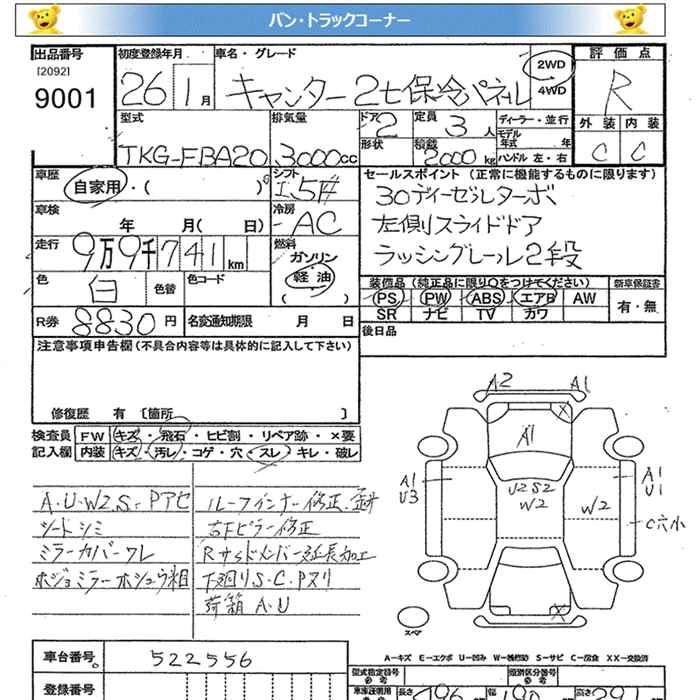 バン・トラックコーナー
出品番号
[2092]
9001
初度登録年月
26 1月
車名・グレード
キャンター 2t保冷パネル
2WD
4WD
評価点
R
外装 内装
C C
型式
TKG-FBA20
排気量
3000cc
ドア
2
形状
定員
3人
積載
2000kg
ディーラー・並行
モデル年式 年
ハンドル 左・右
車歴
自家用・( )
シフト
I.5F
車検
年 月( 日)
冷房
AC
走行
9万9千741km
燃料
ガソリン
軽油
( )
色
白
色替
色コード
R券 8830円
名変通知期限 月 日
セールスポイント (正常に機能するものに限ります)
30ディーゼルターボ
左側スライドドア
ラッシングレール2段
装備品(純正品に限り○をつけてください)
PS PW ABS エアB AW
SR ナビ TV カワ
新車保証書
有・無
後日品
注意事項申告欄(不具合内容等は具体的に記入して下さい)
修復歴 有 [箇所 ]
検査員記入欄
FW キズ・飛石・ヒビ割・リペア跡・×要
内装 キズ・汚レ・コゲ・穴・スレ・キレ・破レ
A.U.W2.S.=Pアセ
シートシミ
ミラーカバーワレ
ホジョミラーホシュウ相
ルーフインナー修正・
右Fピラー修正
Rサイドメンバー延長加工
下廻りS.C.Pヌリ
荷箱A.U
A2 A1
X
A1
A1
U3
U2S2
W2
W2
A1
U1
C穴小
X
スペア
A−キズ E−エクボ U−凹み W−補修跡 S−サビ C−腐食 XX−交換済
車台番号
522556
登録番号
型式指定番号
参考
類別区分番号
参考
長さ
幅
高さ